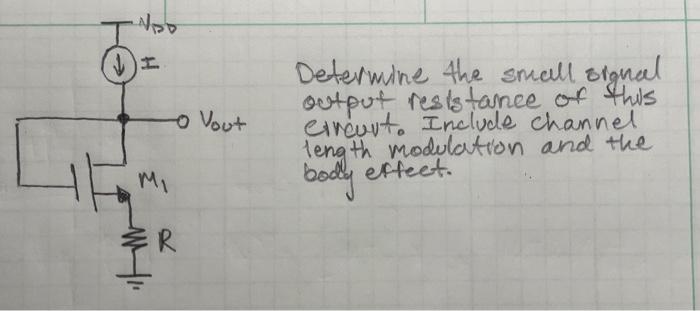 VDD
I
Vout
M1
R
Determine the small signal
output resistance of this
circuit. Include channel
length modulation and the
body effect.